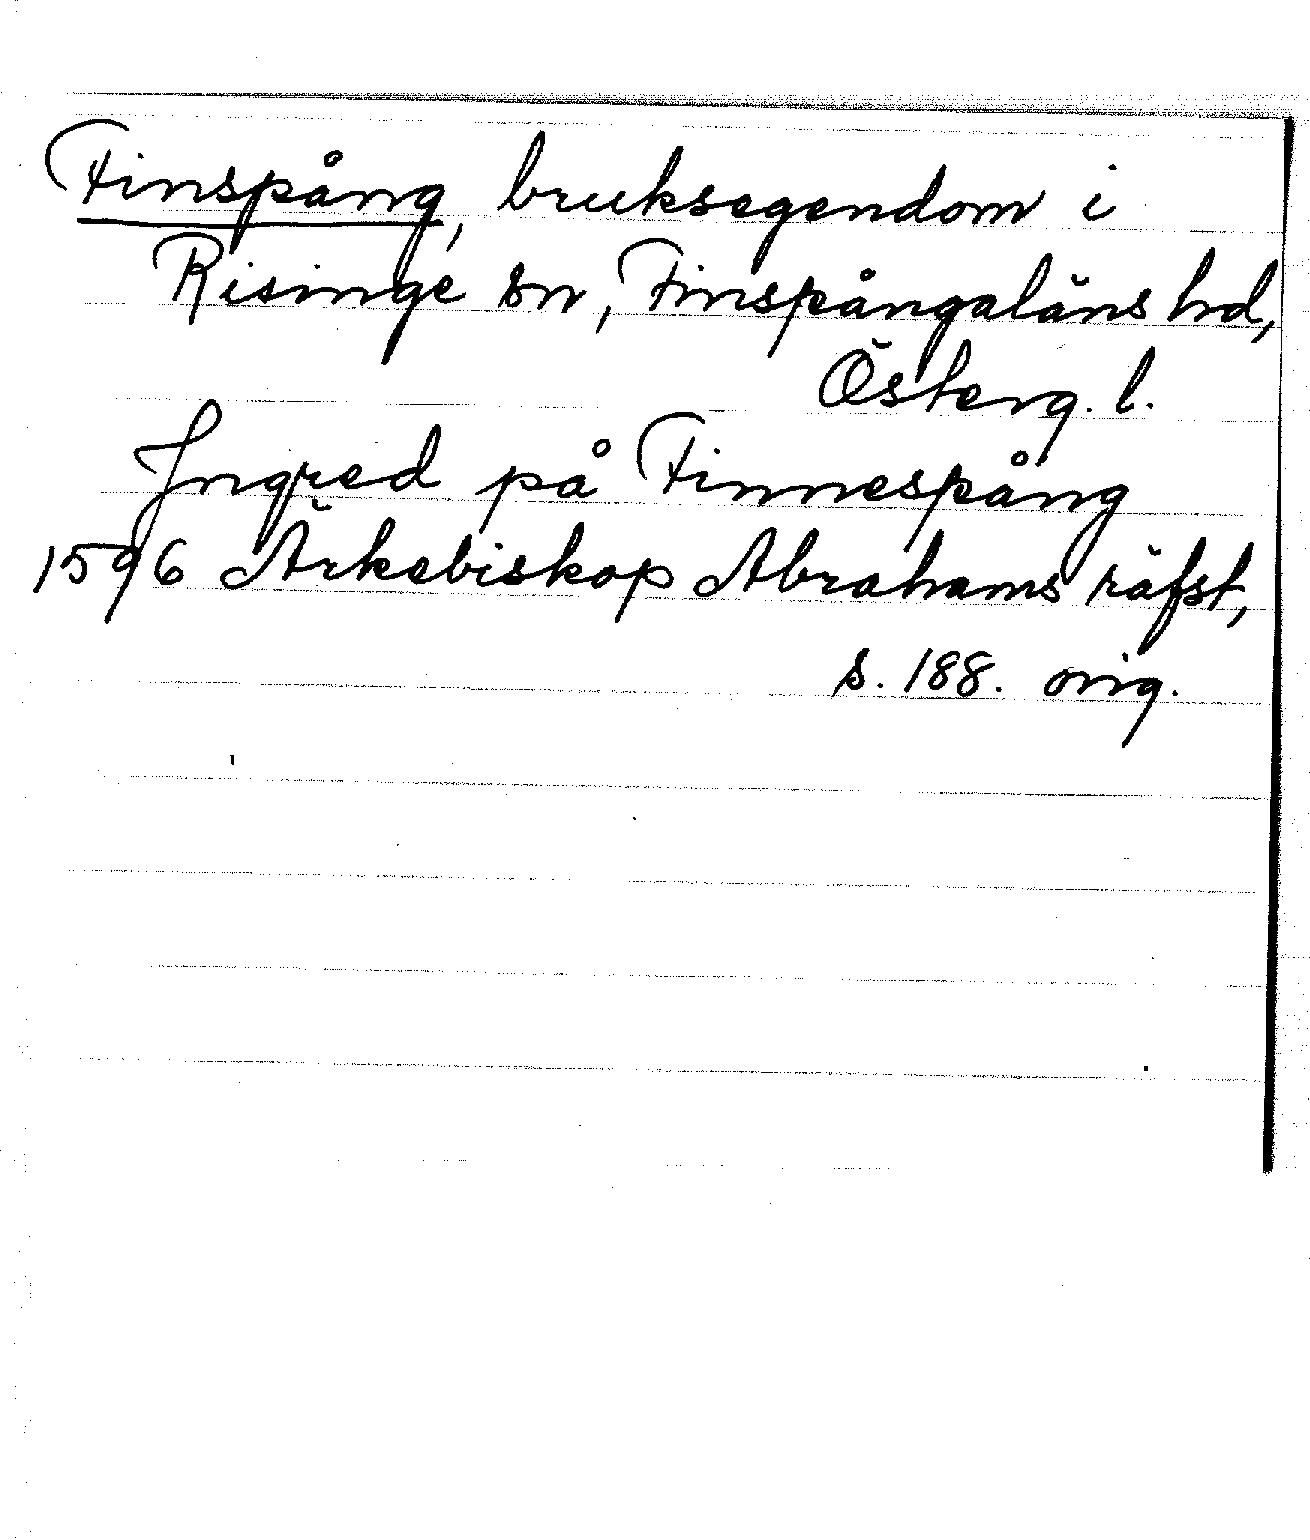 Finspång, bruksegendom i
Risinge sn, Finspångaläns hd,
Österg. l.
Ingred på Finnespång
1596 Ärkebiskop Abrahams räfst,
s. 188. orig.